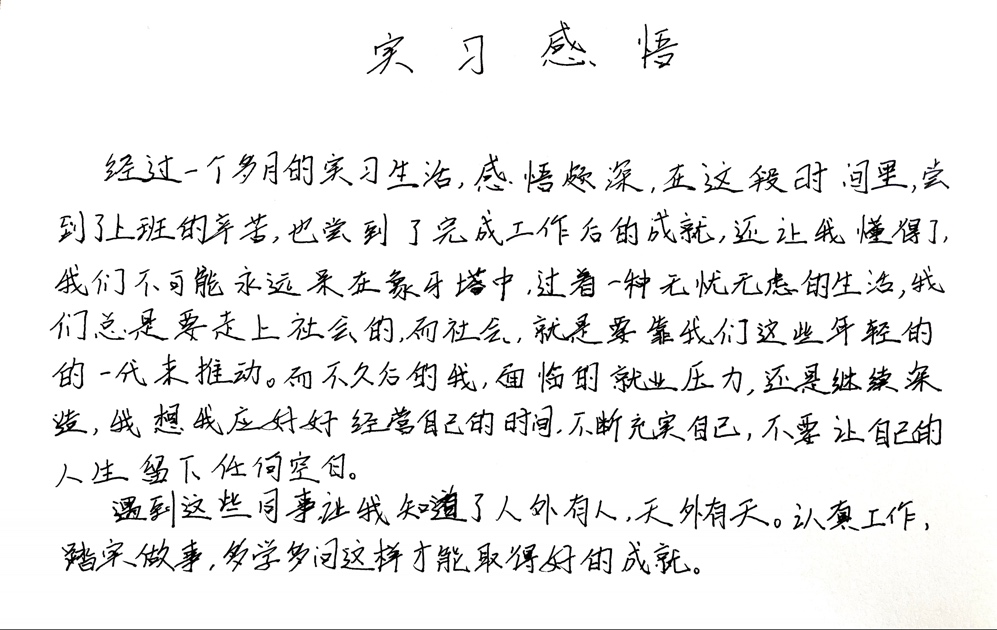 实习感悟
经过一个多月的实习生活,感悟颇深,在这段时间里,尝
到了上班的辛苦,也尝到了完成工作后的成就,还让我懂得了,
我们不可能永远呆在象牙塔中,过着一种无忧无虑的生活,我
们总是要走上社会的,而社会,就是要靠我们这些年轻的
的一代来推动。而不久后的我,面临的就业压力,还是继续深
造,我想我应好好经营自己的时间,不断充实自己,不要让自己的
人生留下任何空白。
遇到这些同事让我知道了人外有人,天外有天。认真工作,
踏实做事,多学多问这样才能取得好的成就。